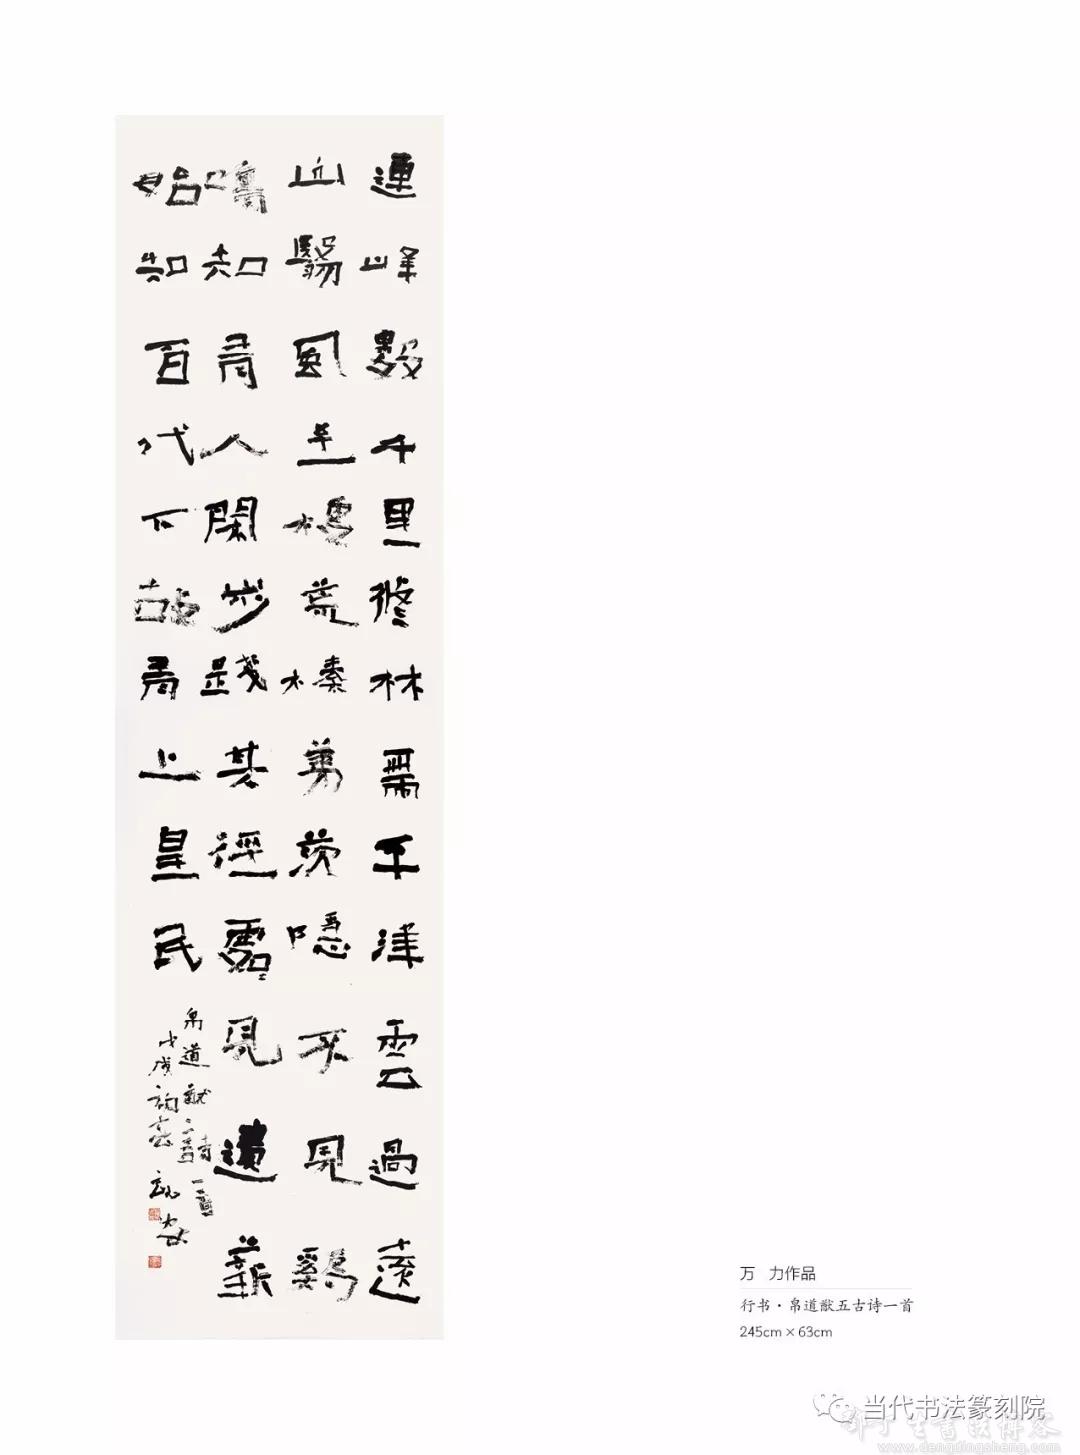 連峰數千里修林帶平津雲過遠
山翳風至梗荒榛茅茨隱不見鷄
鳴知有人閑步踐其徑處〻見遺薪
始知百代下故有上皇民
帛道猷五古詩一首
戊戌
万 力作品
行书·帛道猷五古诗一首
245cm×63cm
当代书法篆刻院
邓丁生书法博客
www.dengdingsheng.com